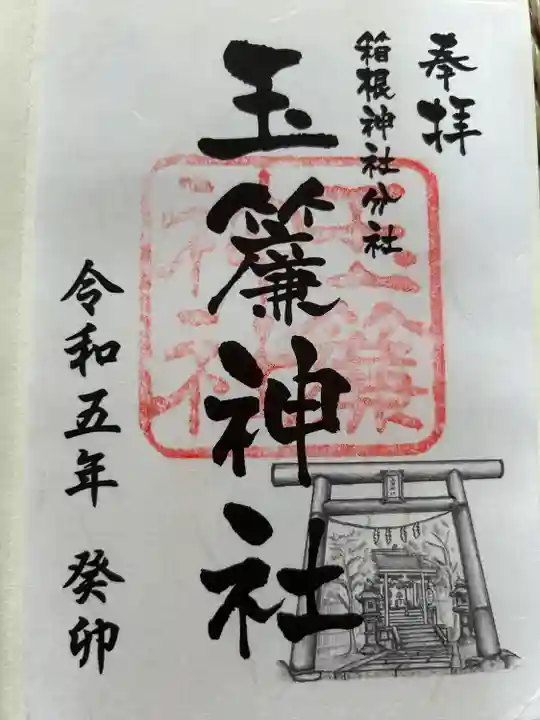 奉拝
箱根神社分社
玉簾神社
玉簾
神社
令和五年 癸卯